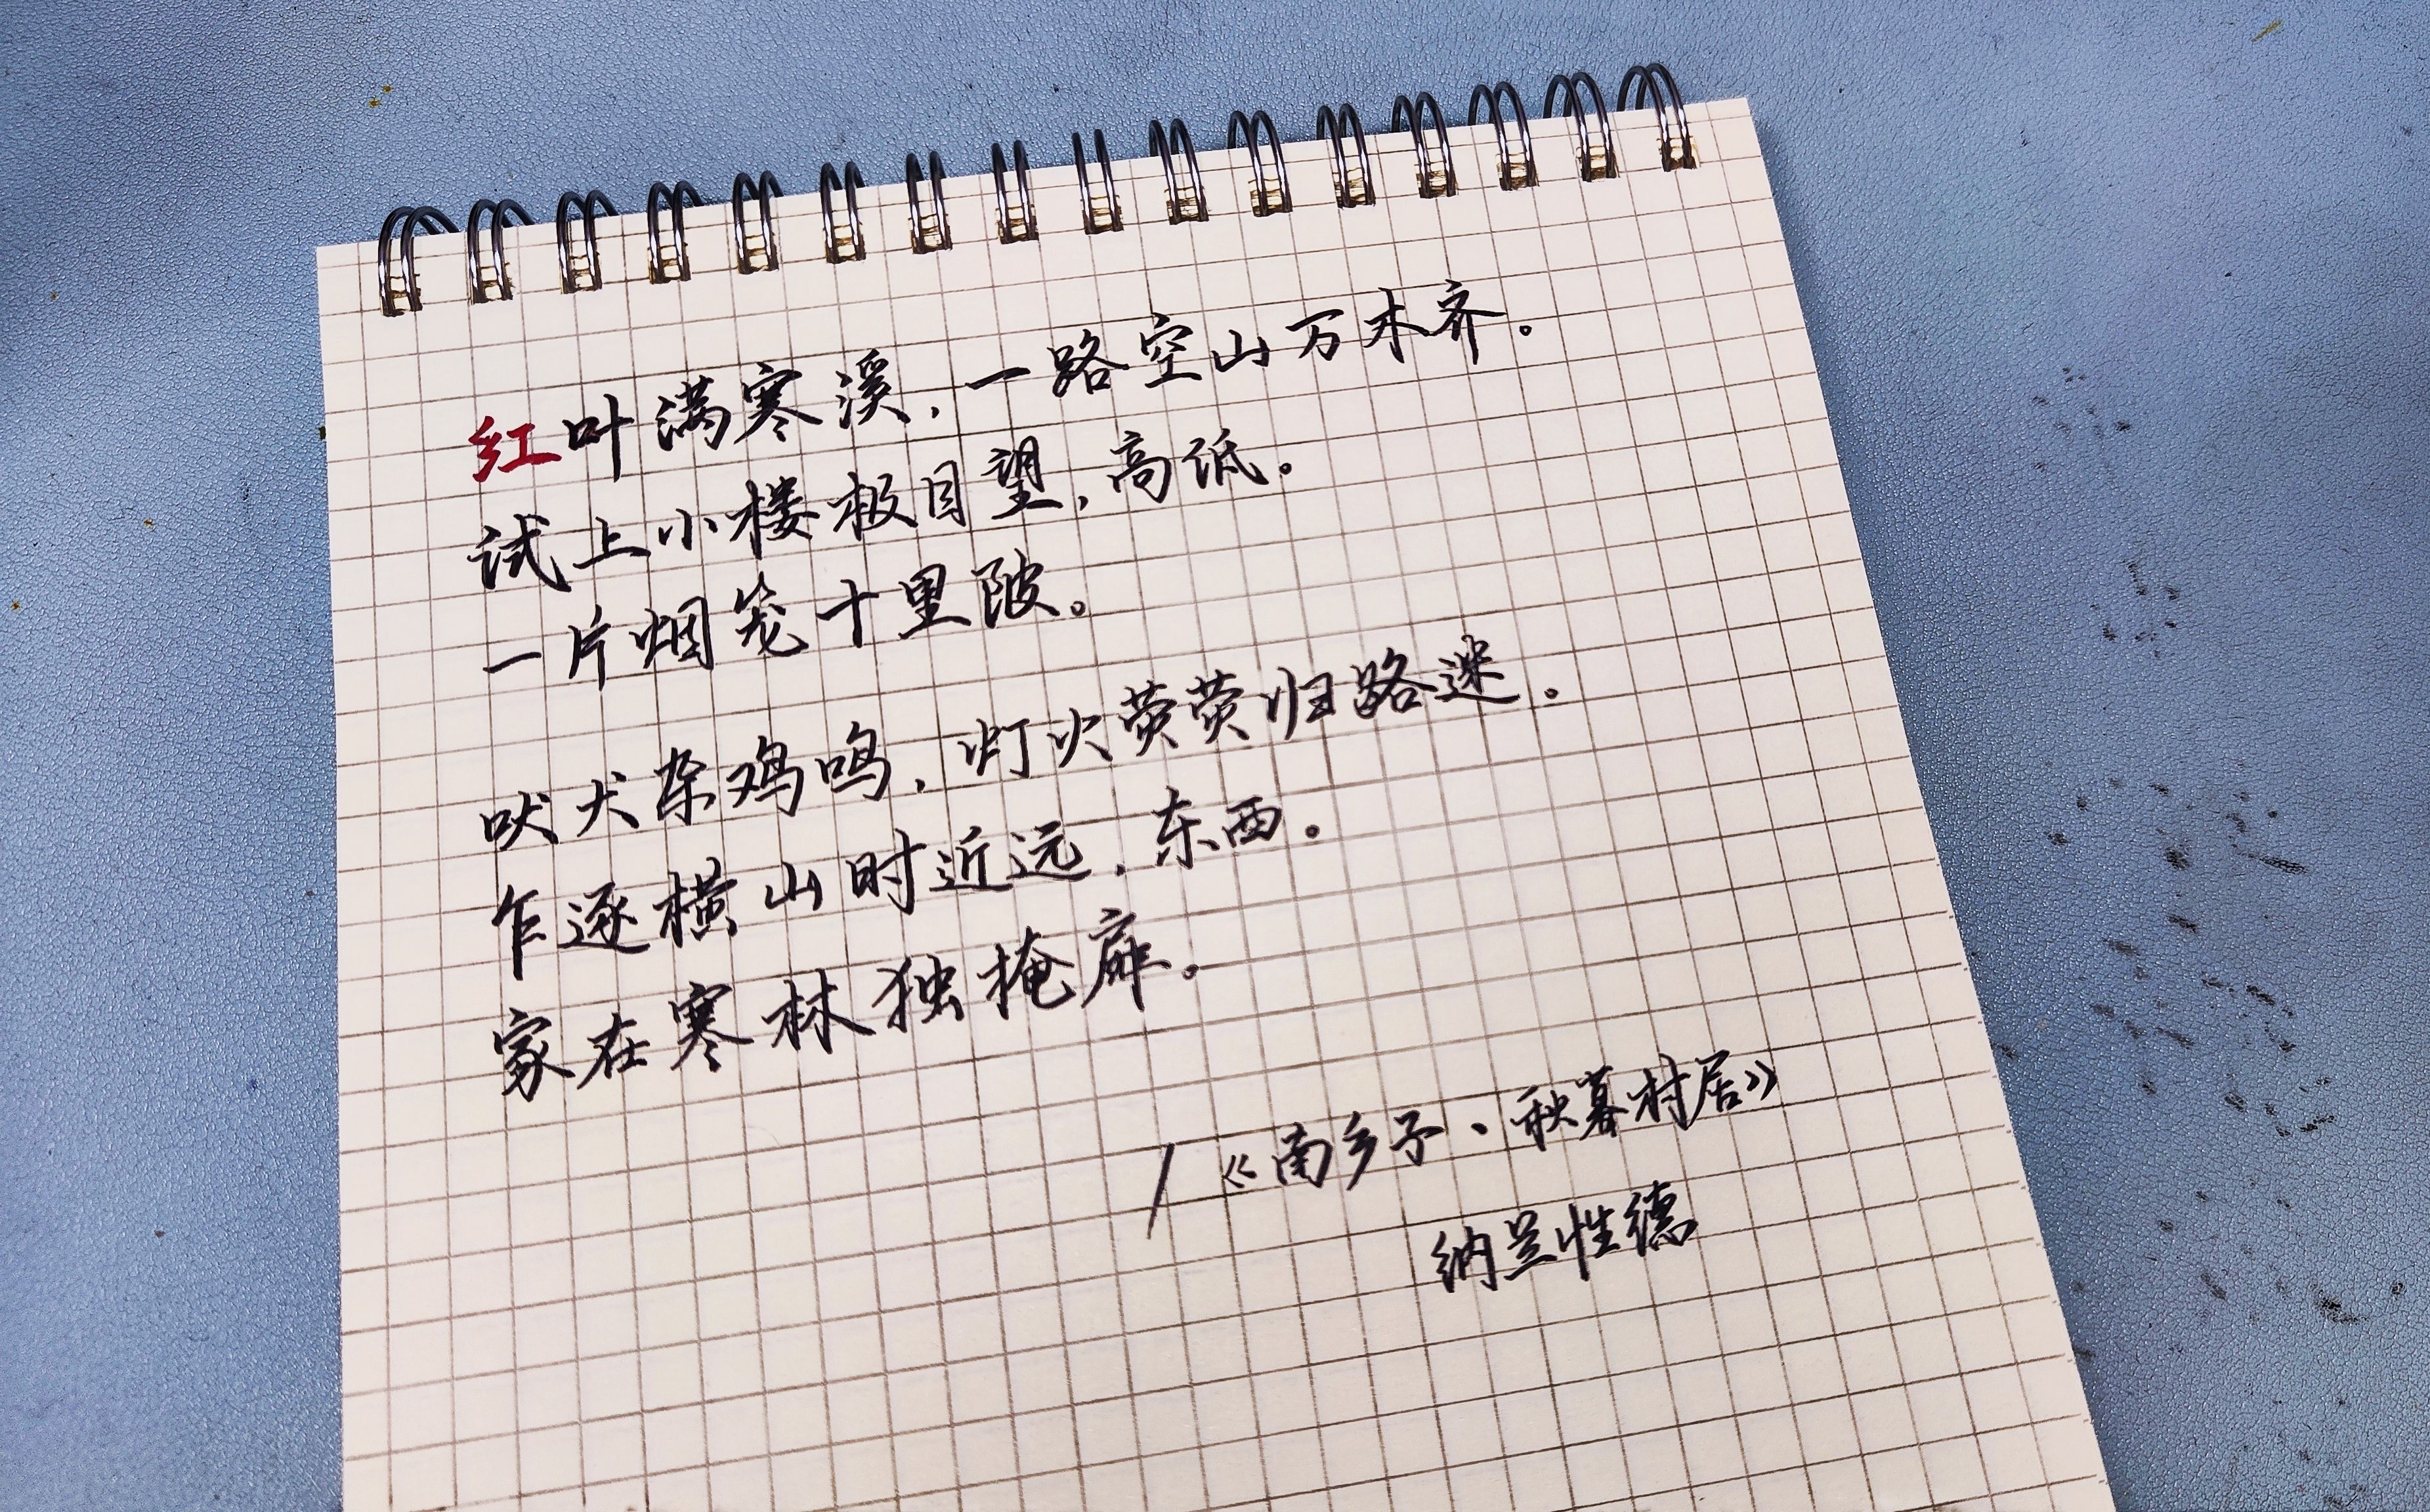 红叶满寒溪，一路空山万木齐。
试上小楼极目望，高低。
一片烟笼十里陂。
吠犬杂鸡鸣，灯火荧荧归路迷。
乍逐横山时近远，东西。
家在寒林独掩扉。
/《南乡子·秋暮村居》
纳兰性德